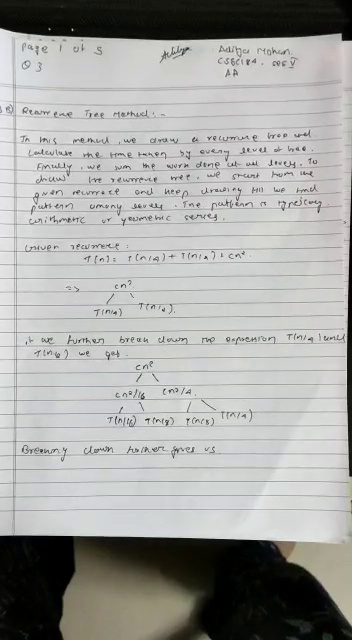 Page 1 of 5
Aditya Mohan.
Q3
CSE V
AA
Recurrence Tree Method:-
In this method, we draw a recurrence tree and
calculate the time taken by every level of tree.
Finally, we sum the work done at all levels. To
draw the recurrence tree, we start from the
given recurrence and keep drawing till we find
pattern among levels. The pattern is typically
arithmetic or geometric series.
Given recurrence:
T(n) = T(n/4) + T(n/2) + cn²
=> cn²
T(n/4) T(n/2).
if we further break down the expression T(n/4) and
T(n/2) we get.
cn²
cn²/16 cn²/4.
T(n/16) T(n/8) T(n/8) T(n/4)
Breaking down further gives us